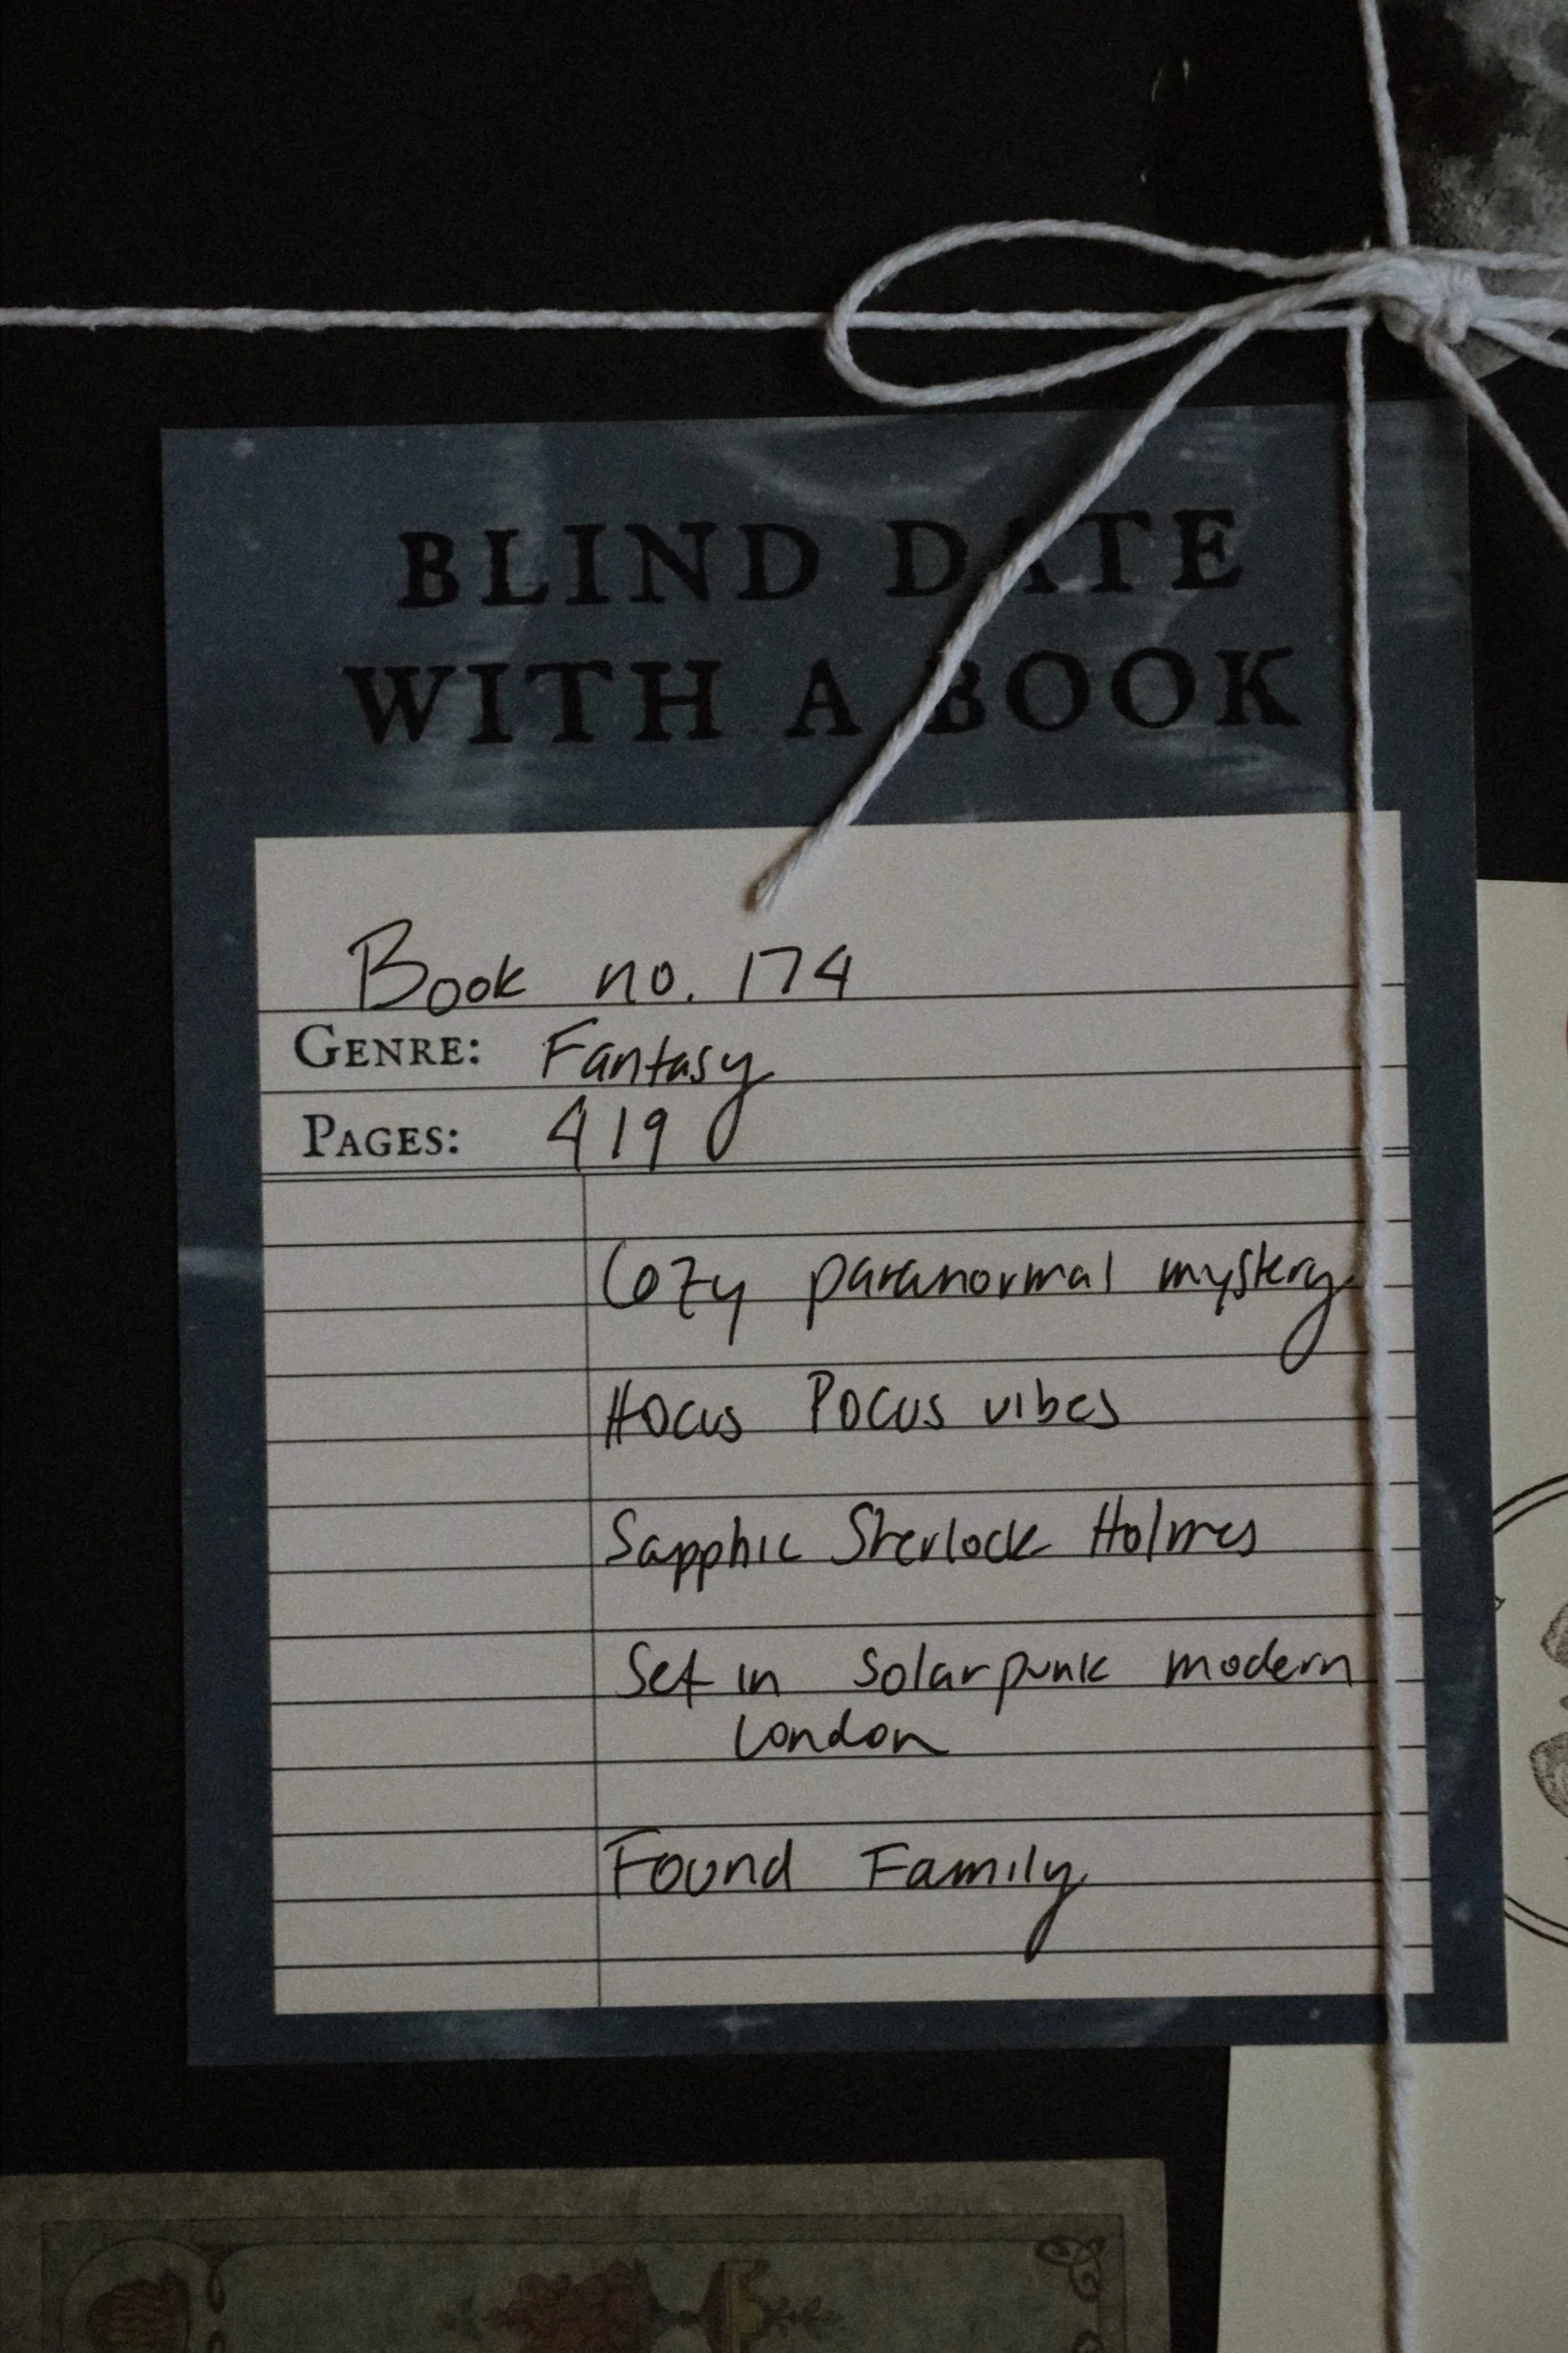 BLIND DATE
WITH A BOOK
Book no. 174
GENRE: Fantasy
PAGES: 419
Cozy paranormal mystery
Hocus Pocus vibes
Sapphic Sherlock Holmes
Set in solarpunk modern
London
Found Family